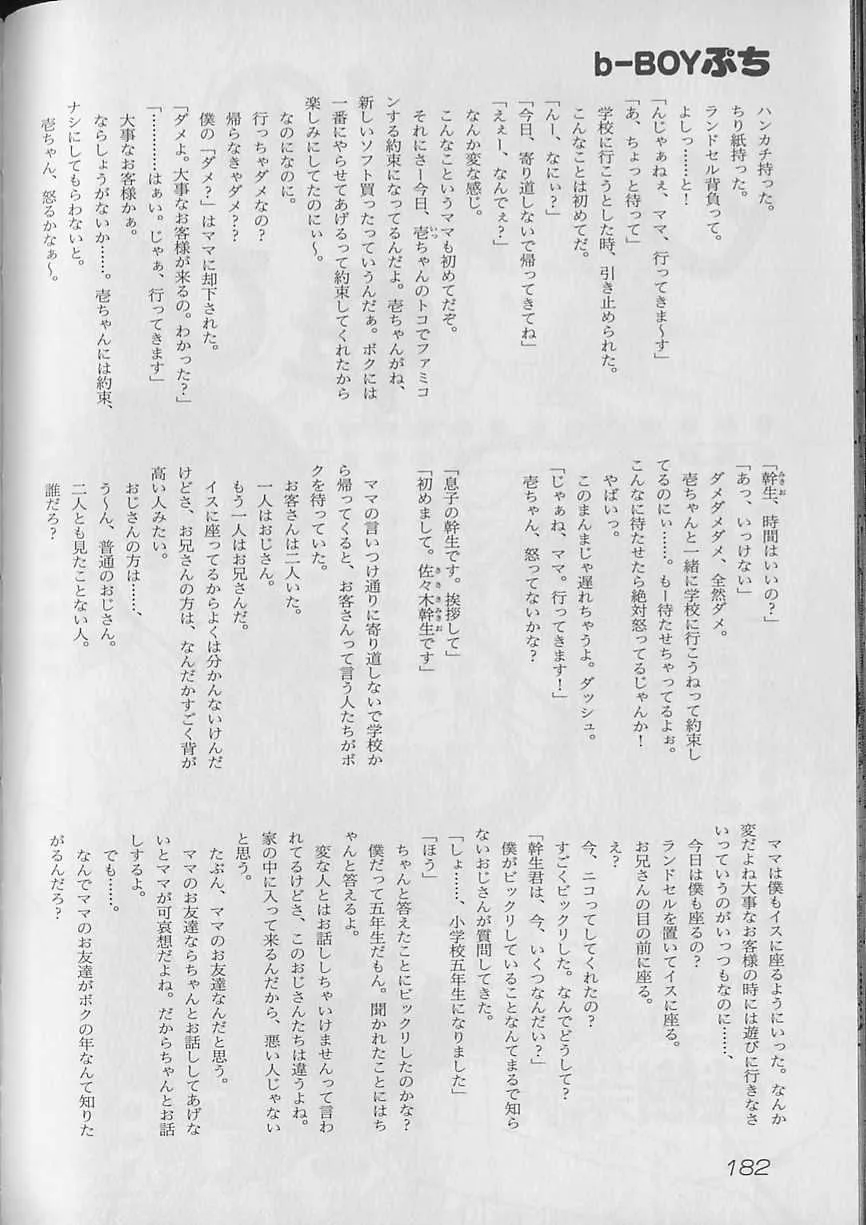 b-BOYぷち
ハンカチ持った。
ちり紙持った。
ランドセル背負って。
よしっ……と!
「んじゃぁねぇ、ママ、行ってきま〜す」
「あ、ちょっと待って」
学校に行こうとした時、引き止められた。
こんなことは初めてだ。
「んー、なにぃ?」
「今日、寄り道しないで帰ってきてね」
「えぇー、なんでぇ?」
なんか変な感じ。
こんなこというママも初めてだぞ。
それにさー今日、壱ちゃんのトコでファミコ
ンする約束になってるんだよ。壱ちゃんがね、
新しいソフト買ったっていうんだぁ。ボクには
一番にやらせてあげるって約束してくれたから
楽しみにしてたのにぃ〜。
なのになのに。
行っちゃダメなの?
帰らなきゃダメ??
僕の「ダメ?」はママに却下された。
「ダメよ。大事なお客様が来るの。わかった?」
「…………はぁい。じゃぁ、行ってきます」
大事なお客様かぁ。
ならしょうがないか……。壱ちゃんには約束、
ナシにしてもらわないと。
壱ちゃん、怒るかなぁ〜。
「幹生、時間はいいの?」
「あっ、いっけない」
ダメダメダメ、全然ダメ。
壱ちゃんと一緒に学校に行こうねって約束し
てるのにぃ……。もー待たせちゃってるよぉ。
こんなに待たせたら絶対怒ってるじゃんか!
やばいっ。
このまんまじゃ遅れちゃうよ。ダッシュ。
「じゃぁね、ママ。行ってきます!」
壱ちゃん、怒ってないかな?
「息子の幹生です。挨拶して」
「初めまして。佐々木幹生です」
ママの言いつけ通りに寄り道しないで学校か
ら帰ってくると、お客さんって言う人たちがボ
クを待っていた。
お客さんは二人いた。
一人はおじさん。
もう一人はお兄さんだ。
イスに座ってるからよくは分かんないけんだ
けどさ、お兄さんの方は、なんだかすごく背が
高い人みたい。
おじさんの方は……、
う〜ん、普通のおじさん。
二人とも見たことない人。
誰だろ?
ママは僕もイスに座るようにいった。なんか
変だよね大事なお客様の時には遊びに行きなさ
いっていうのがいっつもなのに……、
今日は僕も座るの?
ランドセルを置いてイスに座る。
お兄さんの目の前に座る。
え?
今、ニコってしてくれたの?
すごくビックリした。なんでどうして?
「幹生君は、今、いくつなんだい?」
僕がビックリしていることなんてまるで知ら
ないおじさんが質問してきた。
「しょ……、小学校五年生になりました」
「ほう」
ちゃんと答えたことにビックリしたのかな?
僕だって五年生だもん。聞かれたことにはち
ゃんと答えるよ。
変な人とはお話ししちゃいけませんって言わ
れてるけどさ、このおじさんたちは違うよね。
家の中に入って来るんだから、悪い人じゃない
と思う。
たぶん、ママのお友達なんだと思う。
ママのお友達ならちゃんとお話ししてあげな
いとママが可哀想だよね。だからちゃんとお話
しするよ。
でも……。
なんでママのお友達がボクの年なんて知りた
がるんだろ?
182